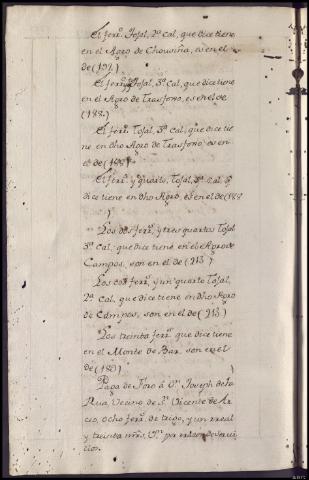 El ferr.º Tojal, 2ª Cal, que dice tiene
en el Agro de Chousiña, es en el
de (191)
El ferr.º Tojal, 3ª Cal, que dice tiene
en el Agro de Trasforno, es en el de
(188)
El ferr.º Tojal, 3ª Cal, que dice tie
ne en dho Agro de Trasforno, es en
el de (188)
El ferr.º y quarto, Tojal, 3ª Cal, q.
dice tiene en dho Agro, es en el de (188
)
Los dos ferr.º y tres quartos Tojal
3ª Cal, que dice tiene en el Agro de
Campos, son en el de (213)
Los ferr.º y un quarto Tojal,
2ª Cal, que dice tiene en dho Agro
de Campos, son en el de (213)
Los treinta ferr.º que dice tiene
en el Monte de Bar son en el
de (180)
Paga de foro á Dn. Joseph de la
Rua, Vecino de Sn. Vicente de Ar
ocho ferr.º de trigo, y un rreal
y treinta mrs. Vn. por